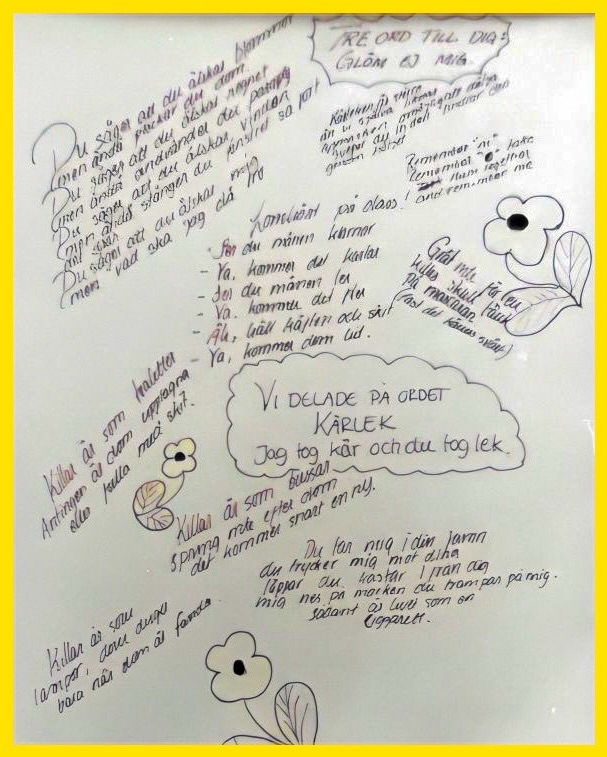 TRE ORD TILL DIG:
GLÖM EJ MIG.
Du säger att du älskar blommor
men ändå plockar du dom.
Du säger att du älskar regnet
men ändå använder du paraply
Du säger att du älskar vinden
men ändå stänger du fönstret så fort
det
Du säger att du älskar mig
men vad ska jag då tro
Kärleken är
gången hälsat
Remember "M" take
Remember "E"
them together
and remember me
på dass!
- Ser du månen
- Ya, kommer det
- Ser du månen ler
- Ya, kommer det fler
- Åh, håll käften och skit
- Ya, kommer dom lid.
Gråt inte för en
killes skull
På mascaran tänk
(fast det känns svårt)
VI DELADE PÅ ORDET
KÄRLEK
Jag tog kär och du tog lek.
Killar är som toaletter
Antingen är dom upptagna
eller fulla med skit.
Killar är som bussar
spring inte efter dom
det kommer snart en ny.
Du tar mig i din famn
du trycker mig mot dina
läppar du kastar ifrån dig
mig ner på marken du trampar på mig.
Sådant är livet som en
cigarett.
Killar är som
lampor, dom duger
bara när dom är